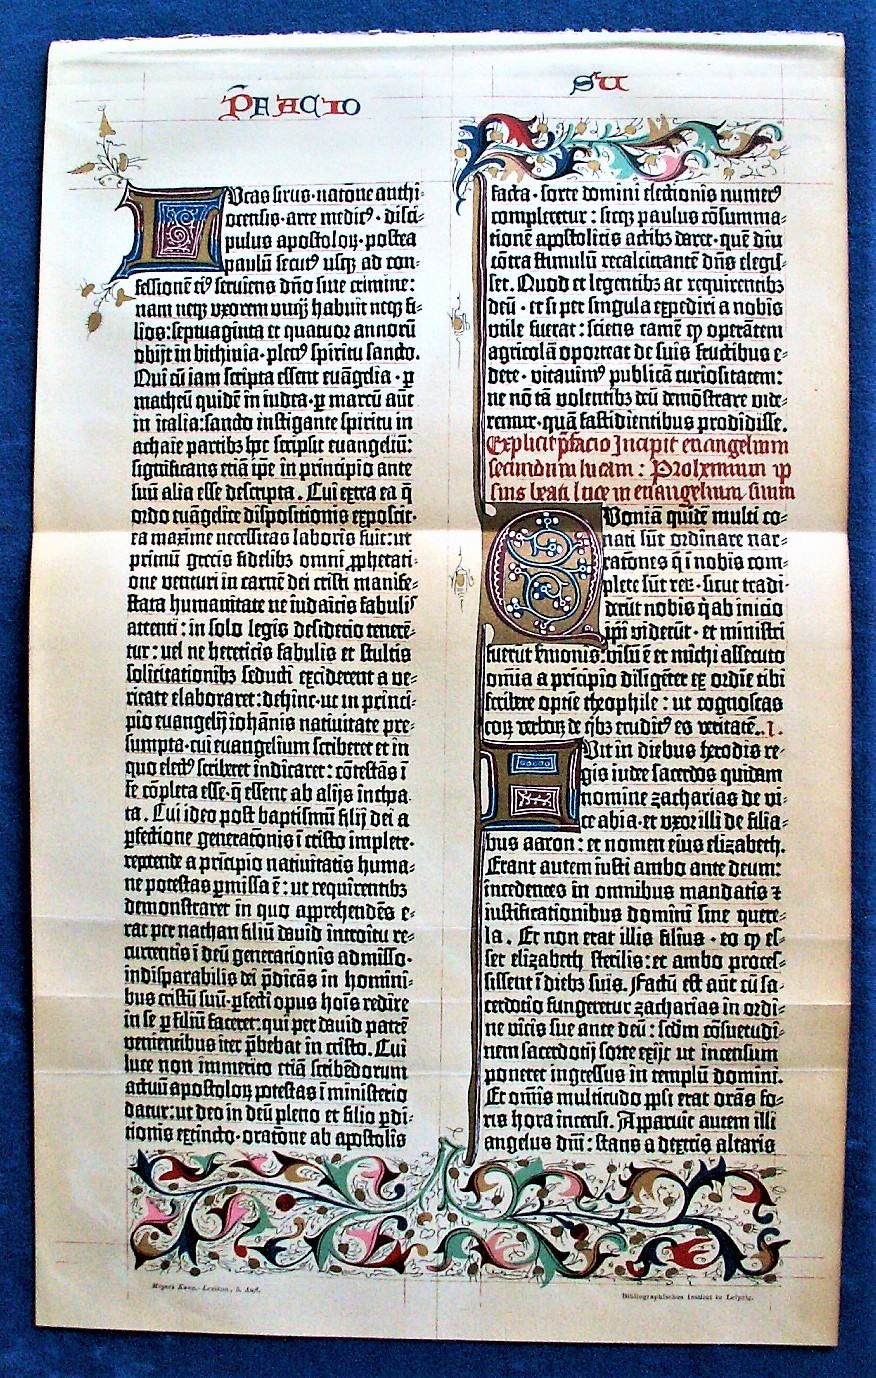 P̄FACIO
SU
LVcas sirus · natōne anthi-
ocensis · arte medicꝰ · disci-
pulus apostoloꝝ · postea
paulū secutꝰ usqꝫ ad con-
fessionē eiꝰ serviens dn̄o sine crimine:
nam neqꝫ vxorem vnqꝫ habuit neqꝫ fi-
lios: septuaginta et quatuor annorū
obijt in bithinia · plenꝰ spiritu sancto.
Qui cū iam scripta essent euāgelia · ꝑ
matheū quidē in iudea · ꝑ marcū aūt
in italia: sancto instigante spiritu in
achaie partibꝫ hoc scripsit euangeliū:
significans etiā ip̄e in principio ante
suū alia esse descripta. Cui extra ea q̄
ordo euāgelice dispositionis exposcit ·
ea maxime necessitas laboris fuit: ut
primū grecis fidelibꝫ omni ꝓphetati-
one venturi in carnē dei cristi manife-
stata humanitate ne iudaicis fabulis
attenti: in solo legis desiderio tenerē-
tur: vel ne hereticis fabulis et stultis
solicitationibꝫ seducti exciderent a ve-
ritate elaboraret: dehinc · ut in princi-
pio euangelij iohānis nativitate pre-
sumpta · cui euangelium scriberet et in
quo electꝰ scriberet indicaret: cōtestās ī
se cōpleta esse · q̄ essent ab alijs inchoa-
ta. Cui ideo post baptismū filij dei a
ꝑfectione generatōnis ī cristo implete ·
repetende a principio nativitatis huma-
ne potestas ꝑmissa ē: ut requirentibꝫ
demonstraret in quo apprehendēs e-
rat per nathan filiū david introitu re-
currentis ī deū generationis admisso ·
indisparabilis dei p̄dicās in homini-
bus cristū suū · ꝑfecti opus hoīs redire
in se ꝑ filiū faceret: qui per david patrē
venientibus iter p̄bebat in cristo. Cui
luce non immerito etiā scribēdorum
actuū apostoloꝝ potestas ī ministerio
datur: ut deo in deū pleno et filio ꝑdi-
tionis extincto · oratōne ab apostolis
facta · sorte domini electionis numerꝰ
compleretur: sicqꝫ paulus cōsumma-
tionē apostolicis actibꝫ daret · quē diu
cōtra stimulū recalcitrantē dn̄s elegis-
set. Quod et legentibꝫ ac requirentibꝫ
deū · et si per singula expediri a nobis
vtile fuerat: sciens tamē ꝙ operātem
agricolā oporteat de suis fructibus e-
dere · vitavimꝰ publicā curiositatem:
ne nō tā volentibꝫ deū demōstrare vide-
remur · quā fastidientibus prodidisse.
Explicit p̄facio Incipit euangelium
secundum lucam: Prohemium ip̄-
sius beati luce in euangelium suum
QVoniā quidē multi co-
nati sūt ordinare nar-
ratōnes q̄ i nobis com-
plete sūt reꝝ · sicut tradi-
derūt nobis q̇ ab inicio
ip̄i viderūt · et ministri
fuerūt smonis: visū ē et michi assecuto
omīa a pricipio diligēter ex ordīe tibi
scribere optīe theophile: ut cognoscas
eoꝝ verboꝝ de q̇bꝫ eruditꝰ es veritatē. I.
FVit in diebus herodis re-
gis iudee sacerdos quidam
nomine zacharias de vi-
ce abia · et vxor illi de filia-
bus aaron: et nomen eius elizabeth.
Erant autem iusti ambo ante deum:
incedentes in omnibus mandatis ⁊
iustificationibus domini sine quere-
la. Et non erat illis filius · eo ꝙ es-
set elizabeth sterilis: et ambo proces-
sissent ī diebꝫ suis. Factū est aūt cū sa-
cerdotio fungeretur zacharias in ordi-
ne vicis sue ante deū: scd̄m cōsuetudi-
nem sacerdotij sorte exijt ut incensum
poneret ingressus in templū domini.
Et om̄is multitudo ppl̄i erat orās fo-
ris hora incensi. Apparuit autem illi
angelus dn̄i: stans a dextris altaris
Meyers Konv.-Lexikon, 5. Aufl.
Bibliographisches Institut in Leipzig.